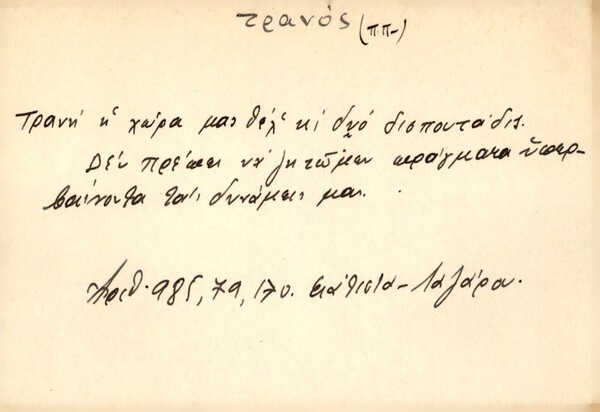 τρανός (ππ-)
Τρανή κ' χώρα μας θέλ' κι δυό δισπουτάδις.
Δέν πρέπει νά ζητῶμεν πράγματα ὑπερ-
βαίνοντα τάς δυνάμεις μας.
Ἀριθ. 985, 79, 170. Λαζάρα.